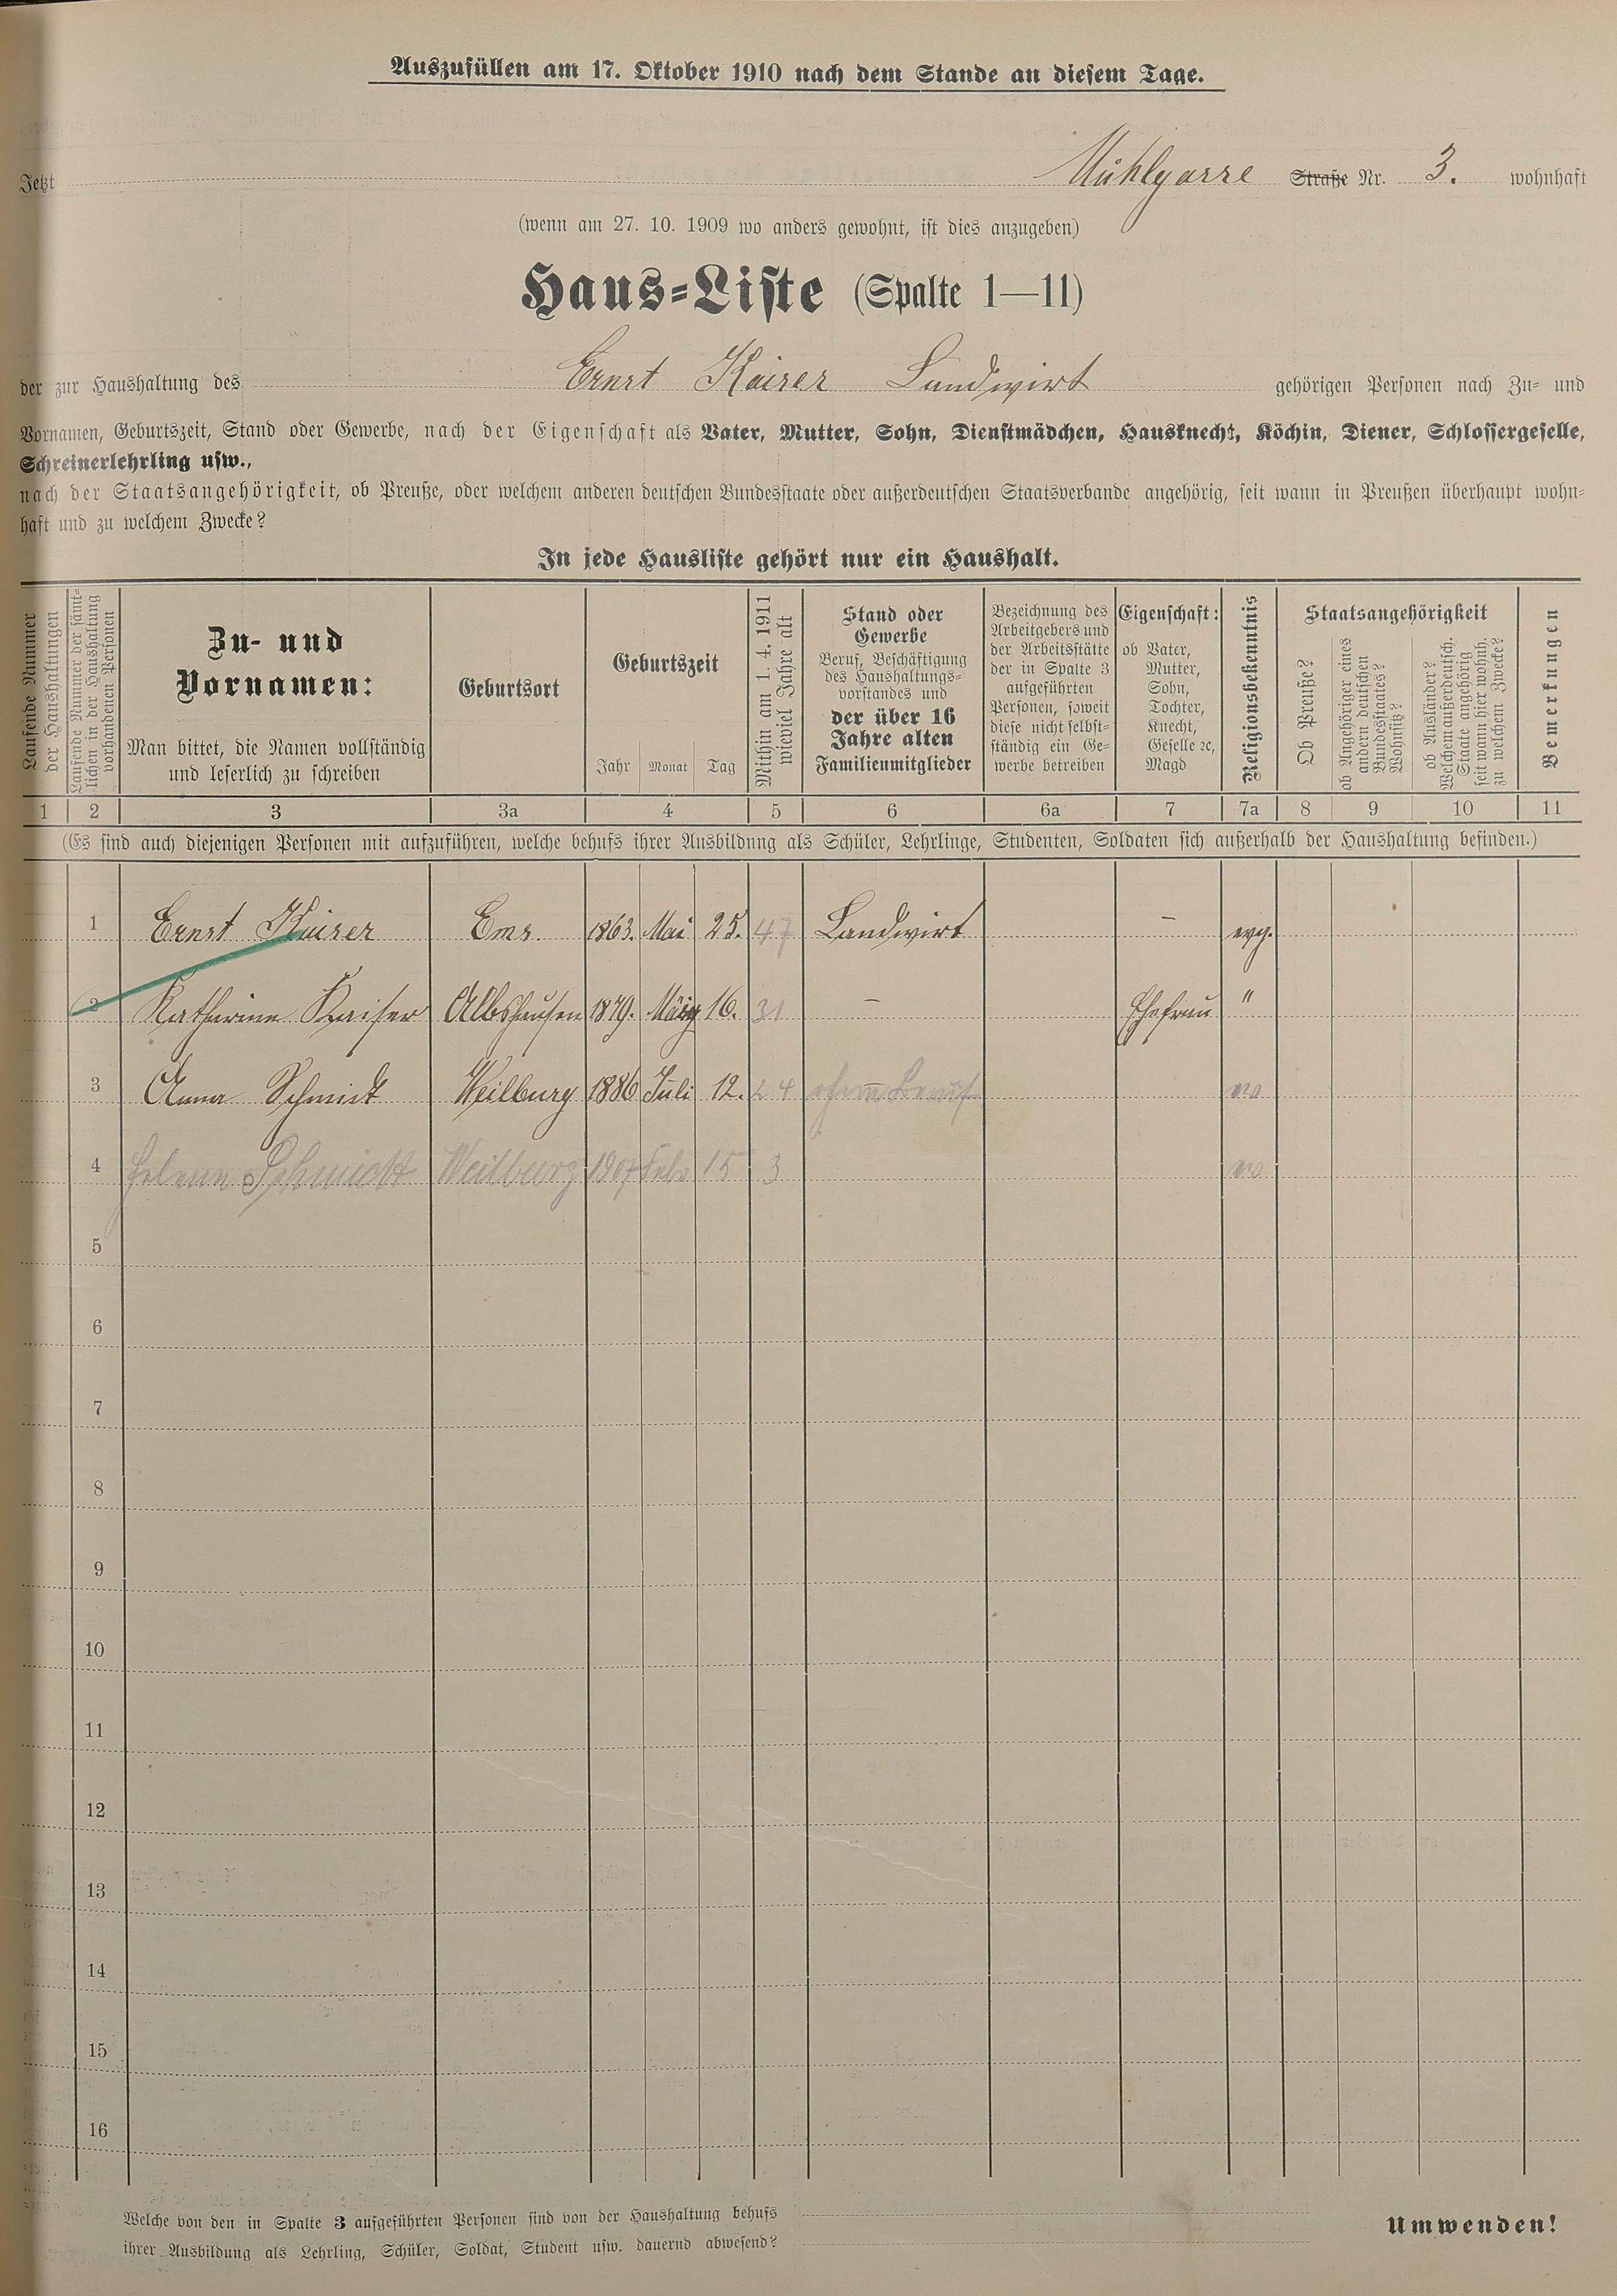 Auszufüllen am 17. Oktober 1910 nach dem Stande an diesem Tage.
Jetzt Mühlgasse Straße Nr. 3. wohnhaft
(wenn am 27. 10. 1909 wo anders gewohnt, ist dies anzugeben)
Haus-Liste (Spalte 1—11)
der zur Haushaltung des Ernst Kaiser Landwirt gehörigen Personen nach Zu- und
Vornamen, Geburtszeit, Stand oder Gewerbe, nach der Eigenschaft als Vater, Mutter, Sohn, Dienstmädchen, Hausknecht, Köchin, Diener, Schlossergeselle,
Schreinerlehrling usw.,
nach der Staatsangehörigkeit, ob Preuße, oder welchem anderen deutschen Bundesstaate oder außerdeutschen Staatsverbande angehörig, seit wann in Preußen überhaupt wohn-
haft und zu welchem Zwecke?
In jede Hausliste gehört nur ein Haushalt.
Laufende Nummer
der Haushaltungen
Laufende Nummer der sämt-
lichen in der Haushaltung
vorhandenen Personen
Zu- und
Vornamen:
Man bittet, die Namen vollständig
und leserlich zu schreiben
Geburtsort
Geburtszeit
Jahr Monat Tag
Mithin am 1. 4. 1911
wieviel Jahre alt
Stand oder
Gewerbe
Beruf, Beschäftigung
des Haushaltungs-
vorstandes und
der über 16
Jahre alten
Familienmitglieder
Bezeichnung des
Arbeitgebers und
der Arbeitsstätte
der in Spalte 3
aufgeführten
Personen, soweit
diese nicht selbst-
ständig ein Ge-
werbe betreiben
Eigenschaft:
ob Vater,
Mutter,
Sohn,
Tochter,
Knecht,
Geselle ꝛc,
Magd
Religionsbekenntnis
Staatsangehörigkeit
Ob Preuße?
ob Angehöriger eines
andern deutschen
Bundesstaates?
Wohnsitz?
ob Ausländer?
Welchem außerdeutsch.
Staate angehörig
seit wann hier wohnh.
zu welchem Zwecke?
Bemerkungen
1 2 3 3a 4 5 6 6a 7 7a 8 9 10 11
(Es sind auch diejenigen Personen mit aufzuführen, welche behufs ihrer Ausbildung als Schüler, Lehrlinge, Studenten, Soldaten sich außerhalb der Haushaltung befinden.)
1 Ernst Kaiser Ems. 1863. Mai 25. 47 Landwirt – evg.
2 Katharina Kaiser Albshausen 1879. März 16. 31 – Ehefrau "
3 Anna Schmidt Weilburg 1886 Juli 12. 24 ohne Beruf ev
4 Helene Schmidt Weilburg 1907 Febr 15 3 ev
5
6
7
8
9
10
11
12
13
14
15
16
Welche von den in Spalte 3 aufgeführten Personen sind von der Haushaltung behufs
ihrer Ausbildung als Lehrling, Schüler, Soldat, Student usw. dauernd abwesend?
Umwenden!